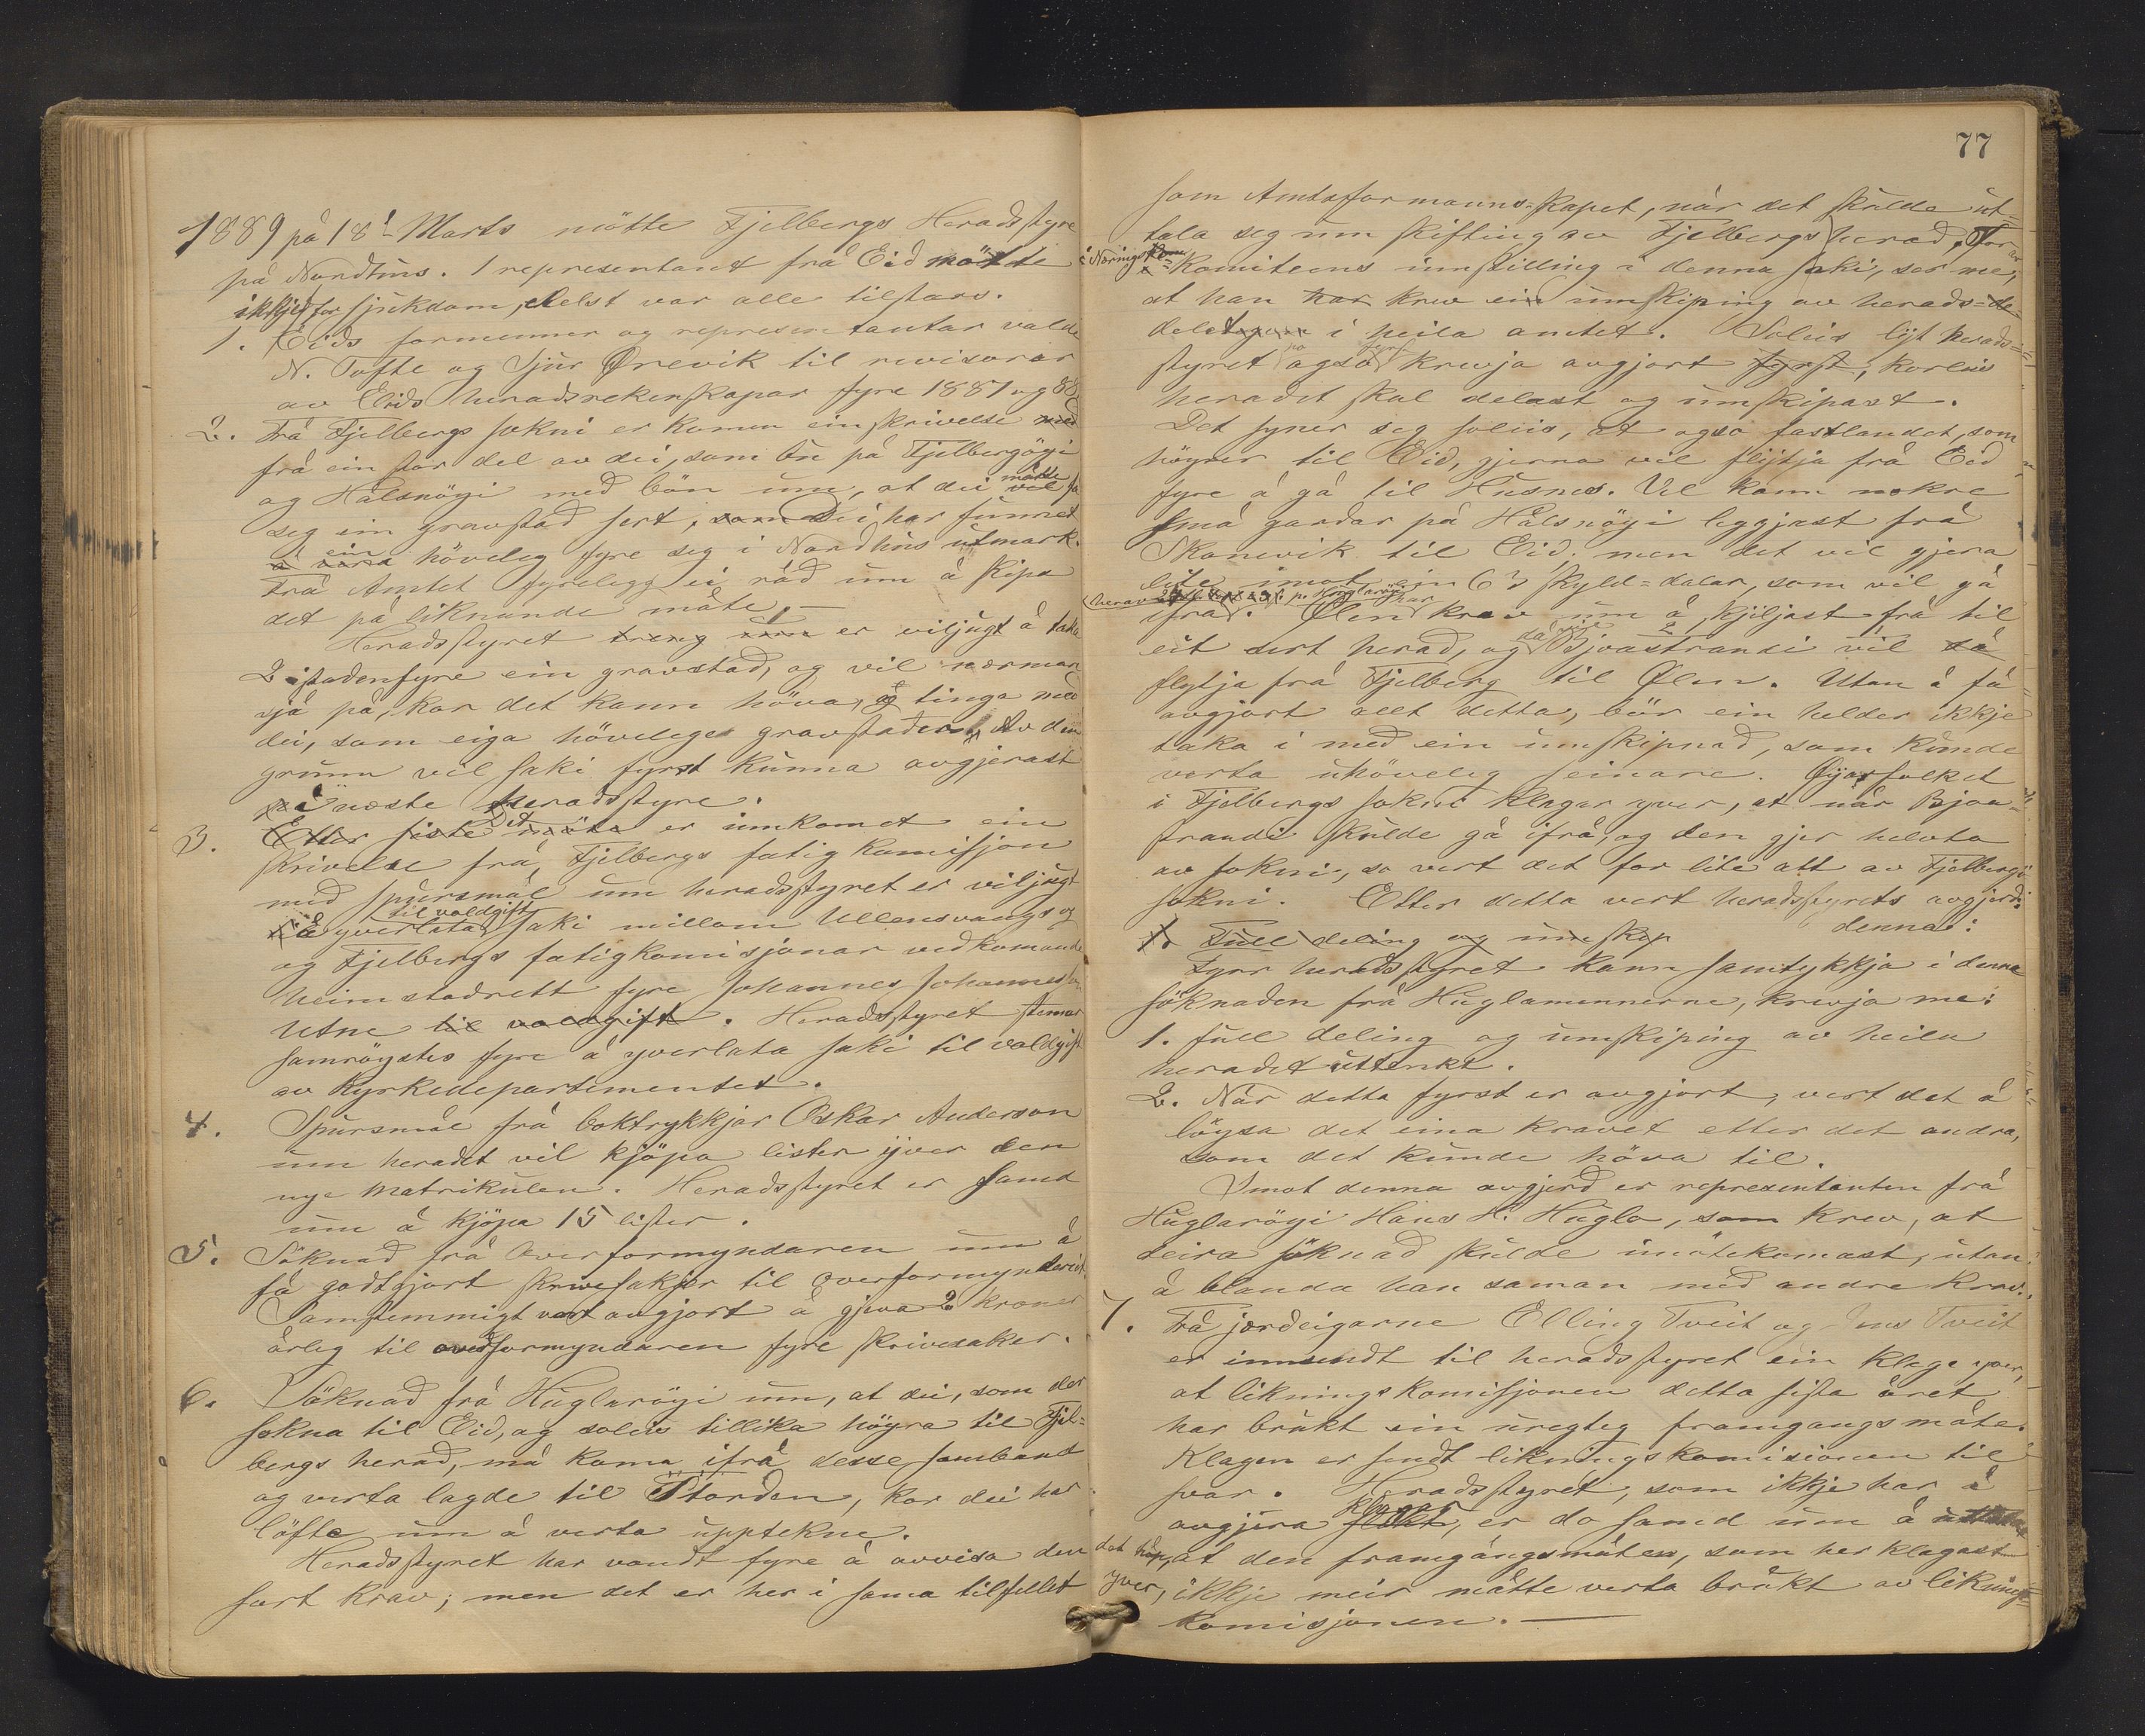 1889 på 18. Marts mötte Fjelbergs Heradsstyre
på Nordhus. 1 representant frå Eid mötte
ikkje for sjukdom, elelst var alle tilstads.
1. Eids formenner og representantar valde
N. Tofte og Sjur Ørevik til revisorar
av Eids heradsrekenskapar fyre 1887 og 88.
2. Frå Fjelbergs sokni er komen ein skrivelse med
frå ein stor del av dei, som bu på Fjelbergöyi
og Halsnöyi med bön um, at dei måtte vil få
seg ein gravstad sert, som dei har funnet
å vera ein höveleg fyre seg i Nordhus utmark.
Frå Amtet fyrelegg ei råd um å skipa
det på liknande måte. —
Heradsstyret treng er viljugt å taka
2 istadenfyre ein gravstad, og vil nærmar
sjå på, kor det kann höva, og tinga med
dei, som eiga hövelege gravstader. Av den
grunn vil saki fyrst kunna avgjerast
på i næste heradsstyre.
3. Etter siste möte Det er innkomet ein
skrivelse frå Fjelbergs fatigkomisjon
med spursmål um heradsstyret er viljugt
å yverlata til voldgift saki millom Ullensvangs og
og Fjelbergs fatigkomisjonar vedkomande
heimstadrett fyre Johannes Johannesson
Utne til voldgift. Heradsstyret stemar
samröystes fyre å yverlata saki til voldgift
av Kyrkedepartementet.
4. Spursmål frå boktrykkjar Oskar Anderson
um heradet vil kjöpa lister yver den
nye matrikulen. Heradsstyret er samd
um å kjöpa 15 lister.
5. Söknad frå Overformyndaren um å
få godtgjort skrivesakjer til overformynderiet.
Samstemmigt vart avgjort å gjeva 2 kroner
årleg til overformyndaren fyre skrivesaker.
6. Söknad frå Huglaröyi um, at dei, som der
sokna til Eid, og soleis tillika höyra til Fjel-
bergs herad, må koma ifrå desse samband
og verta lagde til Storden, kor dei har
löfte um å verta upptekne.
Heradsstyret har vondt fyre å avvisa den
sort krav; men det er her i sama tilfellet
77
som Amtsformanns-skapet, når det skulde ut-
tala seg um skifting av Fjelbergs herad, For
i Nærings
Komiteens innstilling i denna saki, ser me,
at han har krev ein umskiping av herads-de-
delet i heila amtet. Soleis lyt herads-
styret også på fyrst krevja avgjort fyrst, korleis
heradet skal delast og umskipast.
Det syner seg soleis, at også fastlandet, som
höyrer til Eid, gjerna vil flytja frå Eid
fyre å gå til Husnes. Vel kann nokre
små gardar på Halsnöyi leggjast frå
Skonevik til Eid, men det vil gjera
lite imot ein 63 skyld-dalar, som vil gå
ifrå. Ølen krev um å skiljast frå til
eit sert herad, og då Bjoastrandi vil så
flytja frå Fjelberg til Ølen. Utan å få
avgjort allt detta, bör ein helder ikkje
taka i med ein umskipnad, som kunde
verta uhöveleg seinare. Øyarfolket
i Fjelbergs sokni klagar yver, at når Bjoa-
strandi skulde gå ifrå, og den gjer helvta
av sokni, so vert det for lite att av Fjelbergs
sokni. Etter detta vert heradsstyrets avgjerd
denna:
1. Full deling og umskip
Fyrr heradsstyret kann samtykkja i denna
söknaden frå Huglamennerne, krevja me:
1. full deling og umskiping av heila
heradet uttenkt.
2. Når detta fyrst er avgjort, vert det å
löysa det eina kravet etter det andra,
som det kunde höva til.
Imot denna avgjerd er representanten frå
Huglaröyi Hans H. Hugla, som krev, at
deira söknad skulde imötekomast, utan
å blanda han saman med andre krav.
7. Frå jordeigarne Elling Tveit og Jens Tveit
er innsendt til heradsstyret ein klage yver,
at likningskomisjonen detta sista året
har brukt ein uregteg framgangsmåte.
Klagen er sendt likningskomisionen til
svar. Heradsstyret, som ikkje har å
avgjera klagar slikt, er do samd um å
det håp, at den framgångsmåten, som her klagast
yver, ikkje meir måtte verta brukt av liknings-
komisjonen. —